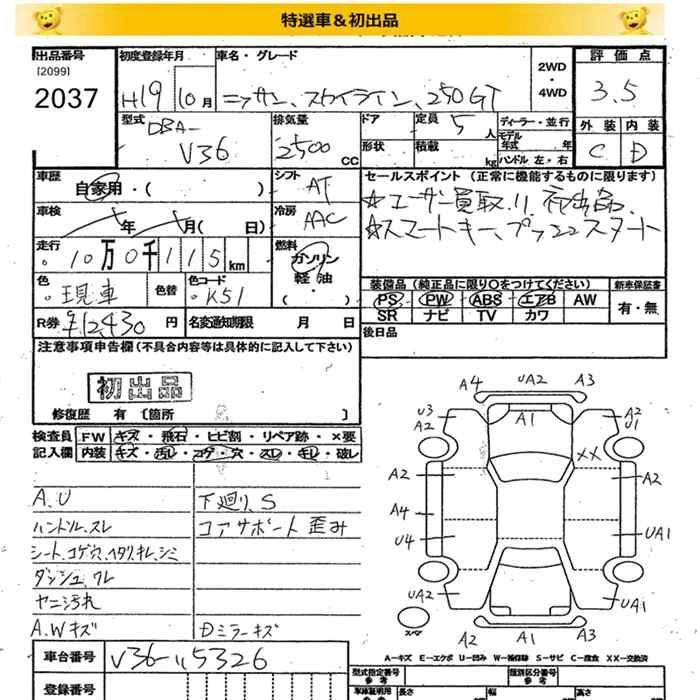 特選車＆初出品
出品番号 初度登録年月 車名・グレード 2WD・4WD 評価点
[2099]
2037
H19 10月 ニッサン、スカイライン、250GT 3.5
型式 排気量 ドア 定員 5人 ディーラー・並行 外装 内装
DBA-V36 2500cc 形状 積載 kg モデル年式 年 ハンドル左・右 C D
車歴 シフト セールスポイント（正常に機能するものに限ります）
自家用・（ ） AT ☆ユーザー買取!! 初出品
車検 年 月（ 日） 冷房 AAC ☆スマートキー、プッシュスタート
走行 10万0千115km 燃料 ガソリン・軽油・（ ）
装備品（純正品に限り○をつけてください） 新車保証書
色 現車 色替 色コード K51 PS PW ABS エアB AW 有・無
SR ナビ TV カワ
R券 ¥12,430円 名変通知期限 月 日 後日品
注意事項申告欄（不具合内容等は具体的に記入して下さい）
初出品
修復歴 有〔箇所 〕
検査員記入欄 FW キズ・飛石・ヒビ割・リペア跡・×要
内装 キズ・汚レ・コゲ・穴・スレ・キレ・破レ
A.U 下廻り、S
ハンドル.スレ コアサポート歪み
シート、コゲ穴、ヘタリ、キレ、シミ
ダッシュ、ワレ
ヤニ汚れ
A.Wキズ Dミラーキズ
A4 UA2 A3
U3 A2 A1 A2 U1
XX
A2 A2
A4
U4 UA1
UA2 A1 UA1
スペア
A2 A1 A3
A-キズ E-エクボ U-凹み W-補修跡 S-サビ C-腐食 XX-交換済
車台番号 V36-115326
型式指定番号 参考 類別区分番号 参考
登録番号 車庫証明用 参考 長さ 幅 高さ